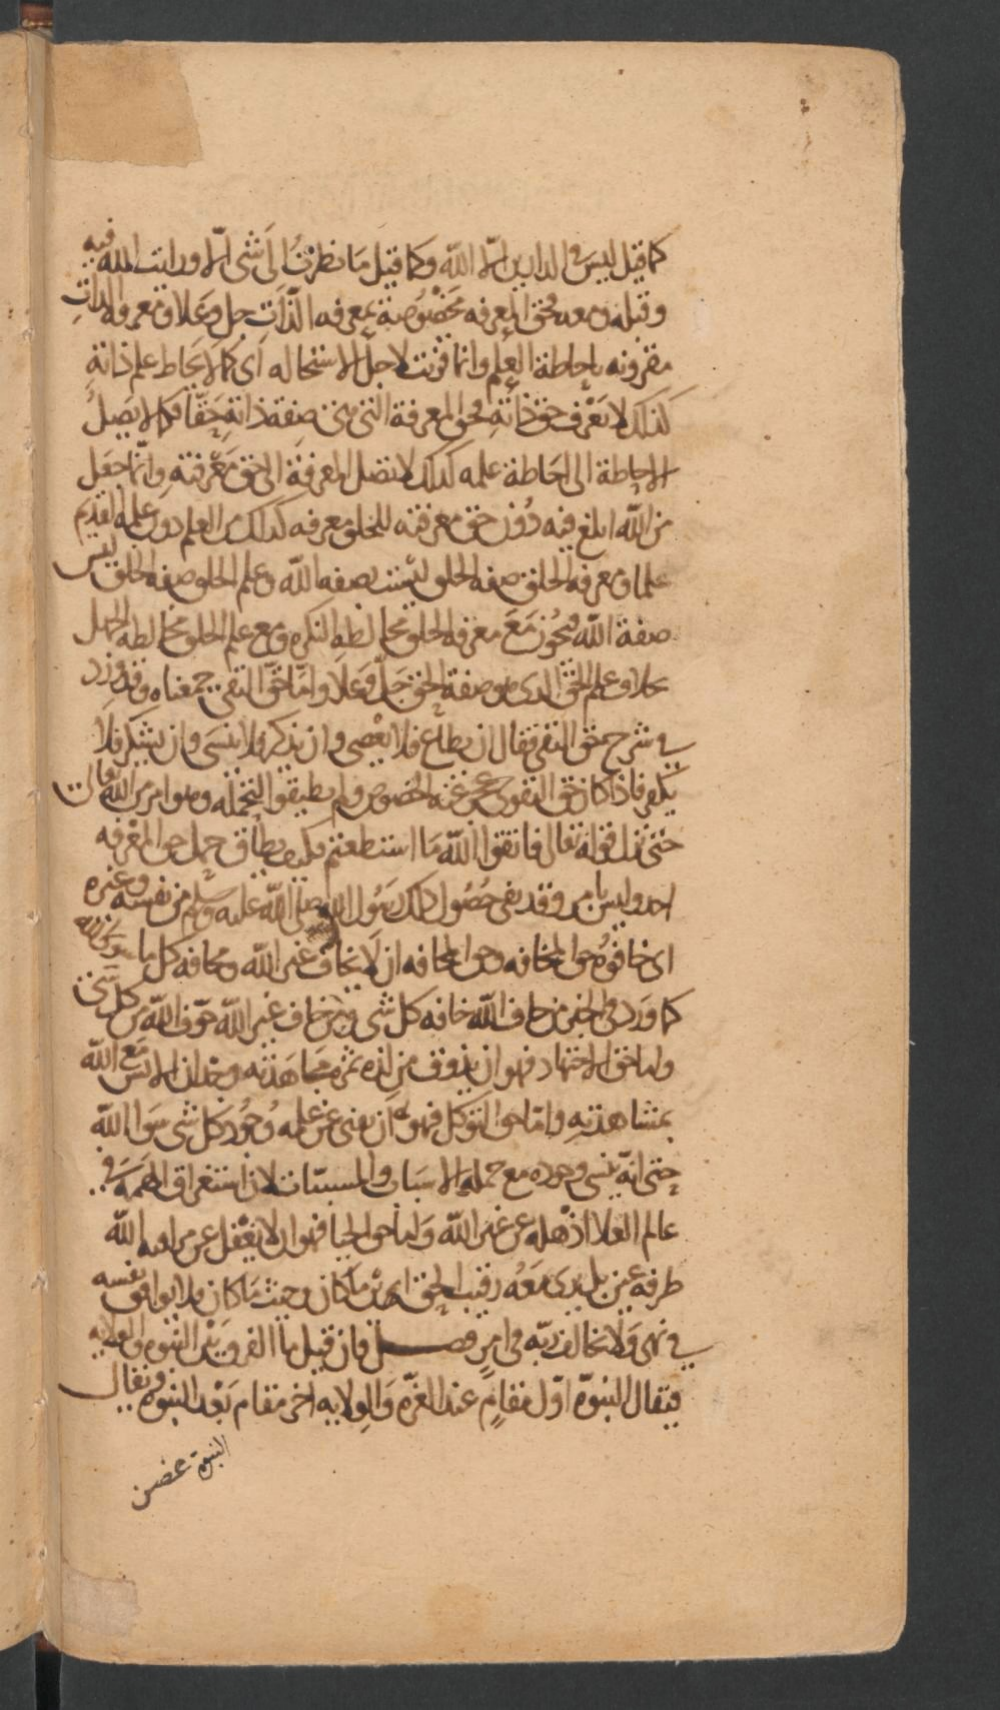 كما قيل ليس في الدارين الا الله وكما قيل ما نظرت الى شى الا ورايت الله فيه
وقبله ومعه فحق المعرفه مخصوصة بمعرفه الذات جل وعلا ومعرفه الذات
مقرونه باحاطة العلم وانما قرنت لاجل الاستحاله اى كما لا يحاط علم ذاته
كذلك لا يعرف حق ذاته فحق المعرفة التى هى صفة ذاته حقا فكما لا يصل
الاحاطة الى احاطة علمه كذلك لا تصل المعرفة الى حق معرفته وانما جعل
من الله ابلغ فيه دون حق معرفته للخلق معرفه كذلك من العلم دون علمه القديم
علما ومعرفة الخلق صفه الخلق ليست بصفه الله وعلم الخلق صفه الخلق ليس
صفة الله فيجوز مع معرفه الخلق مخالطه النكره ومع علم الخلق مخالطه الجهل
بخلاف علم الحق الذى هو صفة الحق جل وعلا واما حق التقى جمعناه وقد ورد
في شرح حق التقى فقال ان يطاع فلا يعصى وان يذكر فلا ينسى وان يشكر فلا
يكفر فاذا كان حق التقوى عجز عنه الخصوص ولم يطيقوا لتحمله وهو امر من الله
حتى نزل قوله تعالى فاتقوا الله ما استطعتم فكيف يطاق حمل حق المعرفه
احد وليس بامر وقد نفى حصول ذلك رسول الله صلى الله عليه وسلم من نفسه وغيره
اى خافوه حق المخافه وحق المخافه ان لا يخاف غير الله ومخافه كل ما سوى الله
كما ورد فى الخبر من خاف الله خافه كل شى ومن خاف غير الله خوف الله من كل شى
واما حق الاجتهاد فهو ان يذوق من لذه ثمره مجاهدته وجدان الانس مع الله
بمشاهدته واما حق التوكل فهو ان يفنى عن علمه وجود كل شى سوا الله
حتى انه ينسى وجوده مع جمله الاسباب والمسببات لان استغراق الهمه في
عالم العلا اذهله عن غير الله واما حق الحيا فهو ان لا يغفل عن مراقبه الله
طرفة عين بل يرى معه رقيب الحق اين ما كان وحيث ما كان فلا يوافق نفسه
في نهى ولا يخالف ربه فى امر فصل فان قيل ما الفرق بين النبوه والولايه
فيقال النبوة اول مقام عند الغرة والولايه اخر مقام بعد النبوة ويقال
النبوة